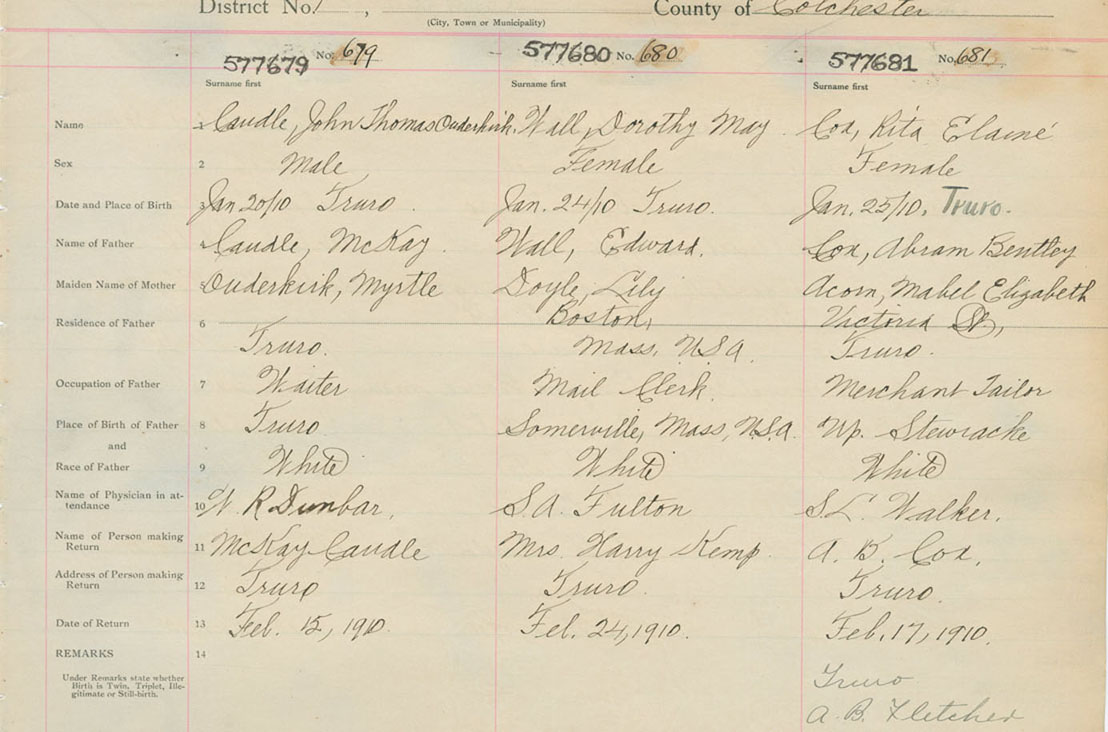 District No. 1, County of Colchester
(City, Town or Municipality)
577679 No. 679 577680 No. 680 577681 No. 681
Surname first Surname first Surname first
Name 1 Caudle, John Thomas Ouderkirk. Wall, Dorothy May Cox, Rita Elaine
Sex 2 Male Female Female
Date and Place of Birth 3 Jan. 20/10 Truro. Jan. 24/10 Truro. Jan. 25/10. Truro.
Name of Father 4 Caudle, McKay Wall, Edward. Cox, Abram Bentley
Maiden Name of Mother 5 Ouderkirk, Myrtle Doyle, Lily Acorn, Mabel Elizabeth
Residence of Father 6 Boston, Victoria St,
Truro. Mass. U.S.A. Truro.
Occupation of Father 7 Waiter Mail Clerk. Merchant Tailor
Place of Birth of Father 8 Truro Somerville, Mass, U.S.A. Up. Stewiacke
and
Race of Father 9 White White White
Name of Physician in at-
tendance 10 W R Dunbar, S.A. Fulton S.L. Walker.
Name of Person making
Return 11 McKay Caudle Mrs. Harry Kemp. A. B. Cox,
Address of Person making
Return 12 Truro Truro. Truro.
Date of Return 13 Feb. 15, 1910. Feb. 24, 1910. Feb. 17, 1910.
REMARKS 14
Under Remarks state whether
Birth is Twin, Triplet, Ille-
gitimate or Still-birth.
Truro
A. B. Fletcher